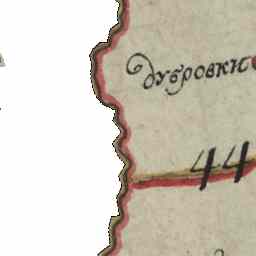 дубровки
44